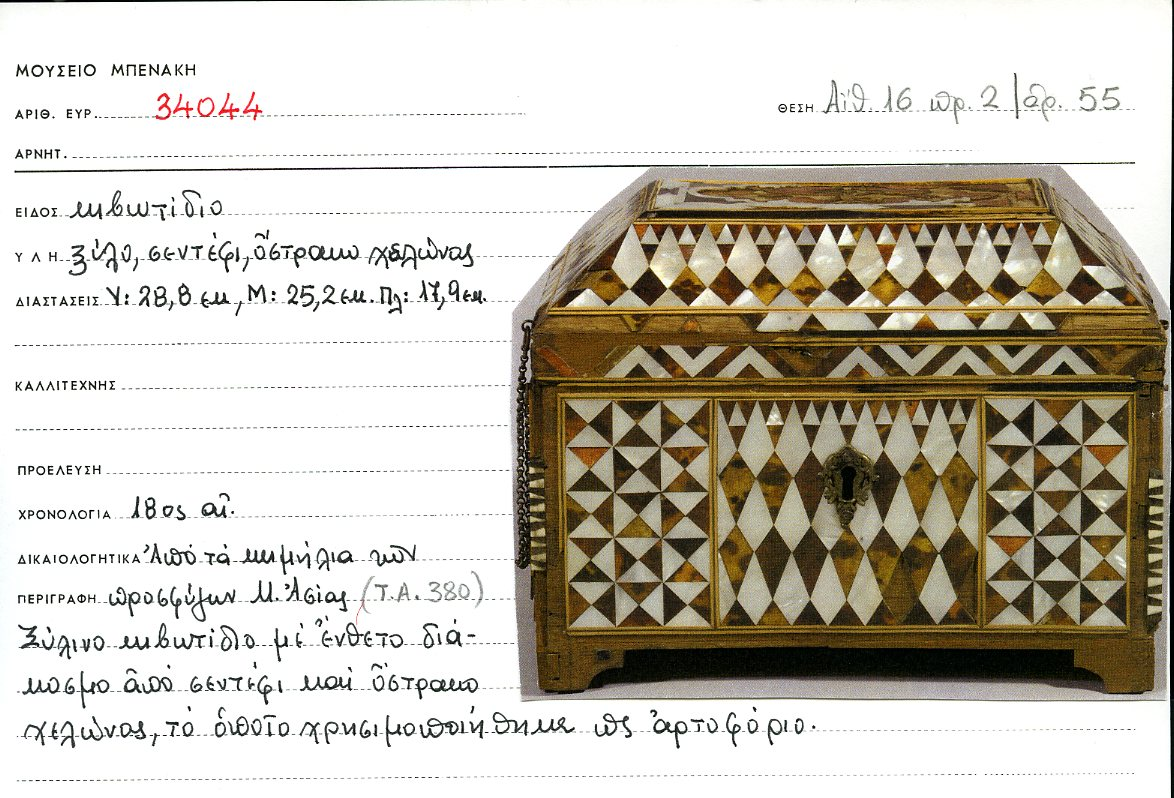 ΜΟΥΣΕΙΟ ΜΠΕΝΑΚΗ
ΑΡΙΘ. ΕΥΡ. 34044
ΘΕΣΗ Αἴθ. 16 πρ. 2/ἀρ. 55
ΑΡΝΗΤ.
ΕΙΔΟΣ κιβωτίδιο
ΥΛΗ ξύλο, σεντέφι, ὄστρακο χελώνας
ΔΙΑΣΤΑΣΕΙΣ Υ: 28,8 εκ, Μ: 25,2 εκ. Πλ: 17,9 εκ.
ΚΑΛΛΙΤΕΧΝΗΣ
ΠΡΟΕΛΕΥΣΗ
ΧΡΟΝΟΛΟΓΙΑ 18ος αἰ.
ΔΙΚΑΙΟΛΟΓΗΤΙΚΑ Ἀπό τά κειμήλια τῶν
ΠΕΡΙΓΡΑΦΗ προσφύγων Μ. Ἀσίας (Τ.Α. 380)
Ξύλινο κιβωτίδιο μέ ἔνθετο διά-
κοσμο ἀπό σεντέφι καί ὄστρακο
χελώνας, τό ὁποῖο χρησιμοποιήθηκε ὡς ἀρτοφόριο.